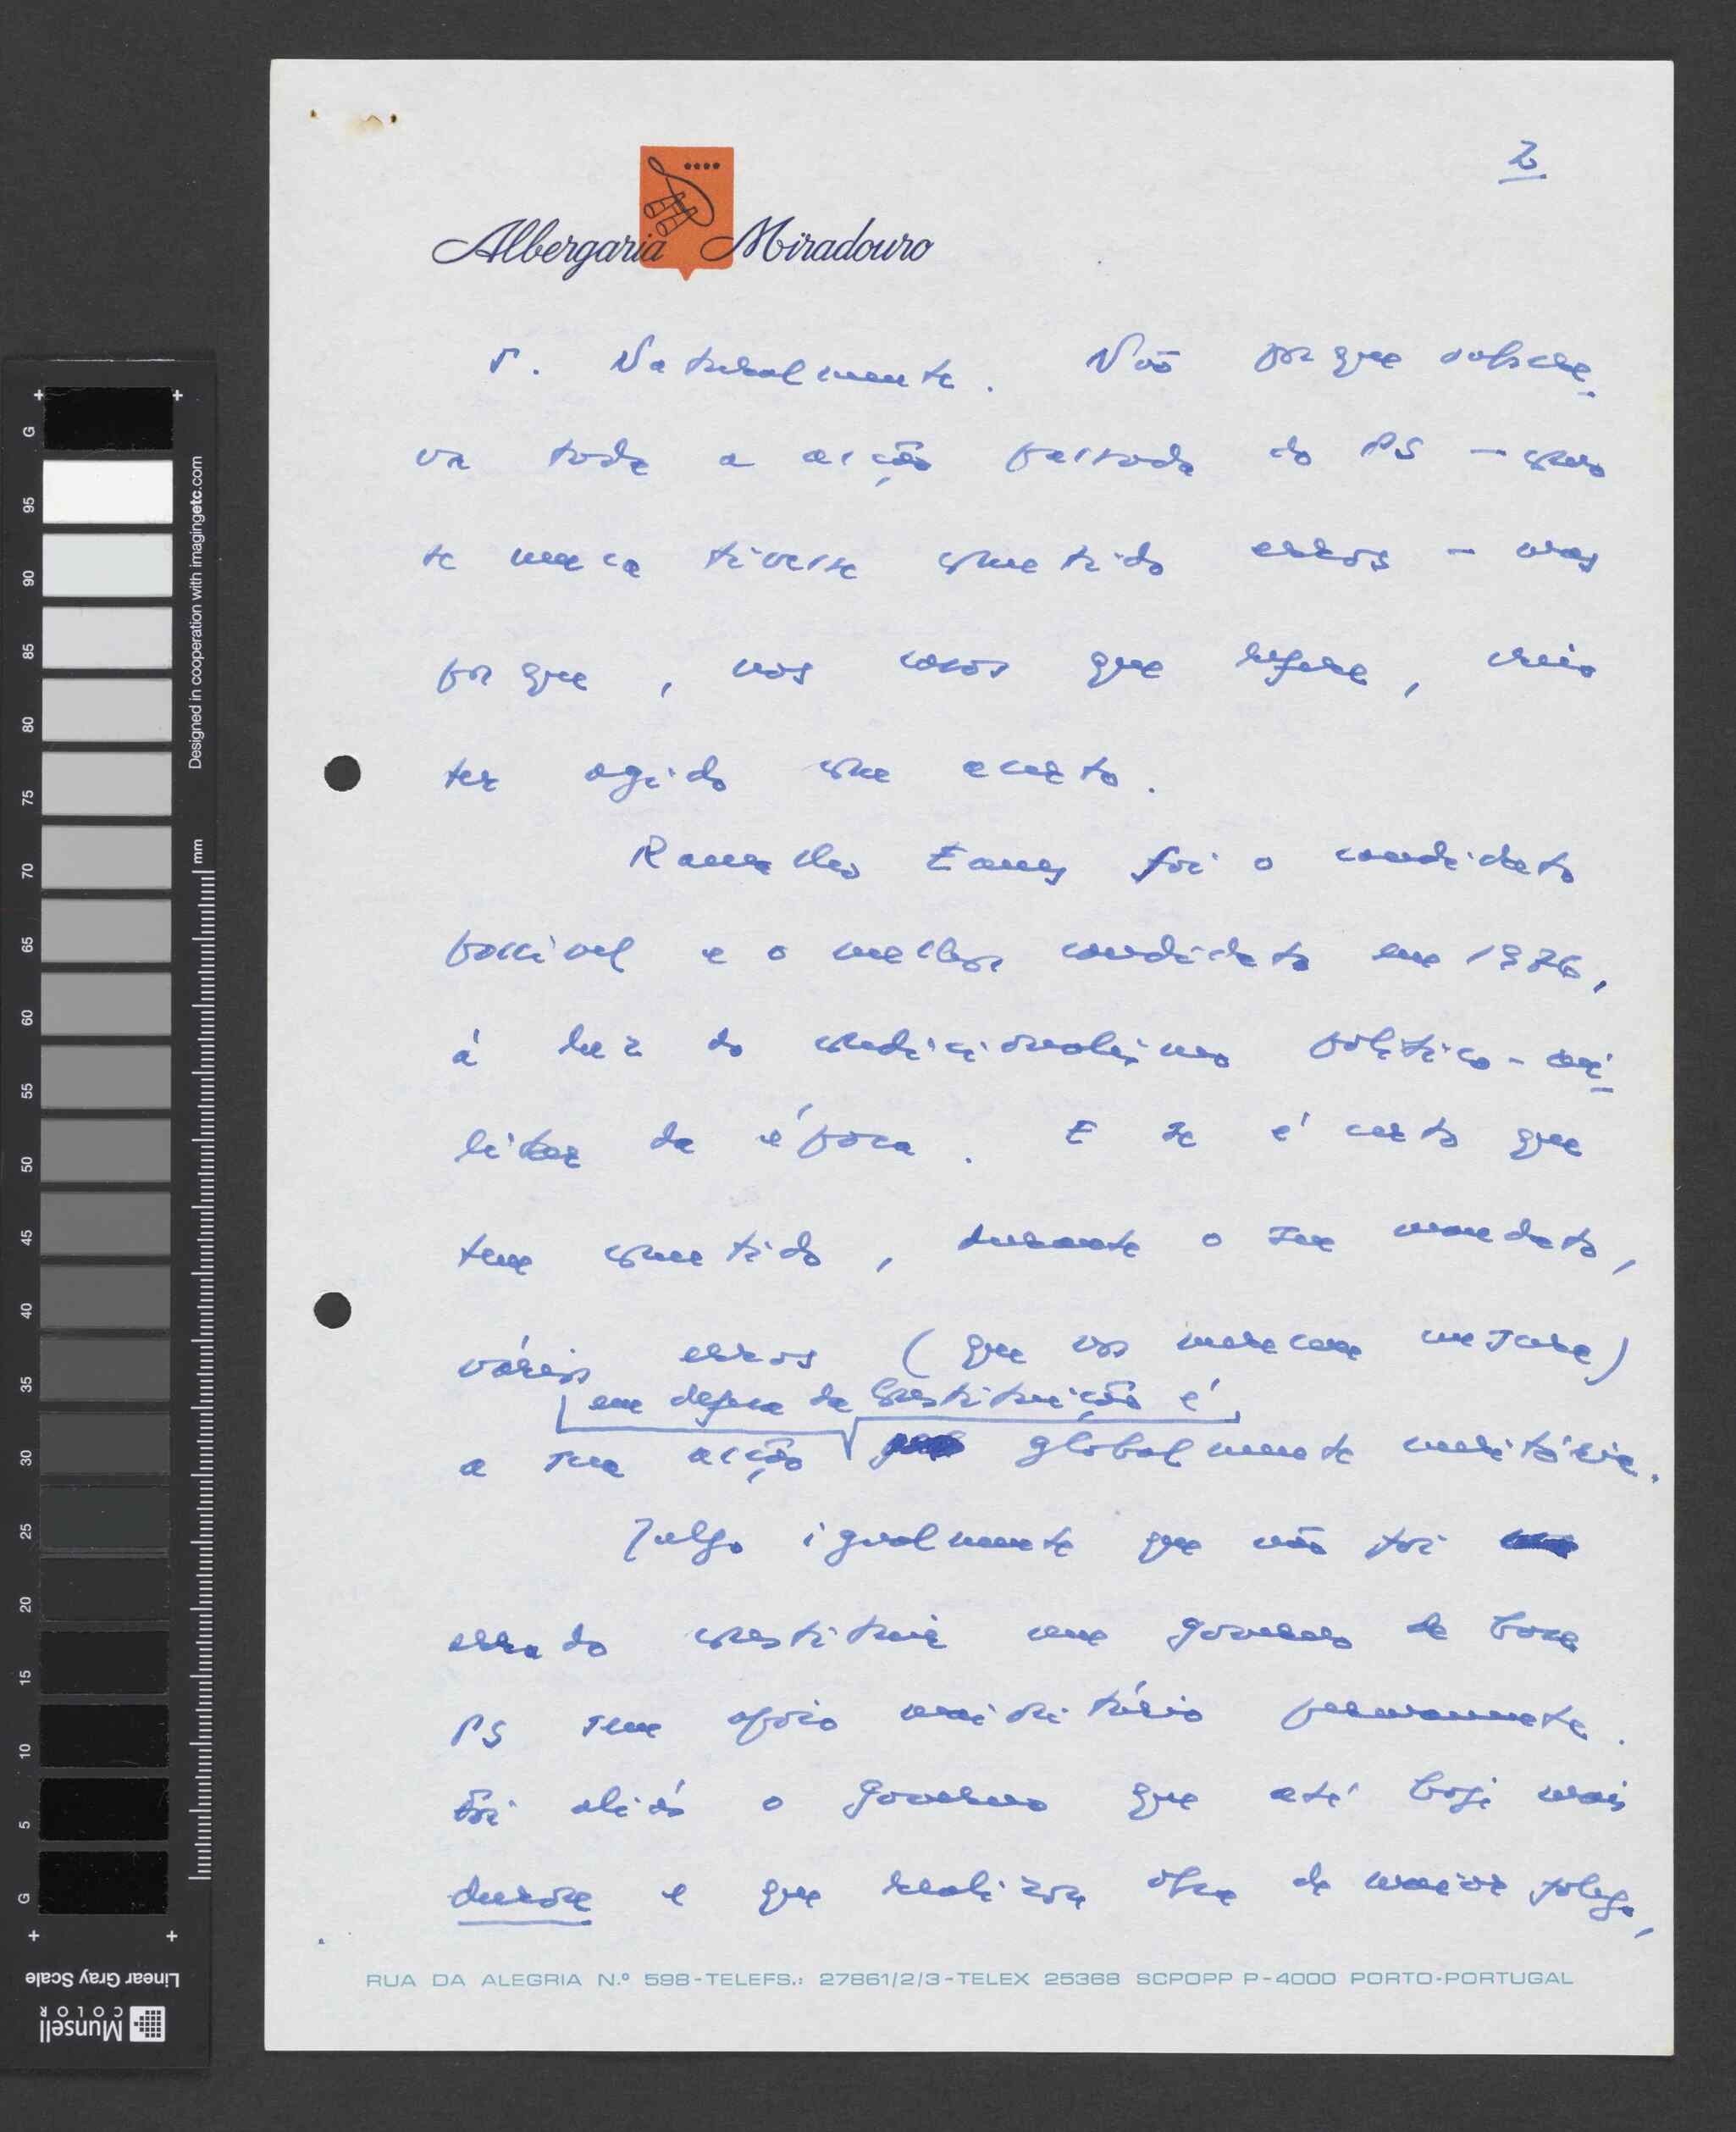 2
Albergaria Miradouro
r. Naturalmente. Não porque subscre-
va toda a acção passada do PS – como
se nunca tivesse cometido erros – mas
porque, nos casos que refere, creio
ter agido com acerto.
Ramalho Eanes foi o candidato
possível e o melhor candidato em 1976,
à luz do condicionalismo político-mi-
litar da época. E se é certo que
tem cometido, durante o seu mandato,
vários erros (que os merecem censura)
em defesa da Constituição é
a sua acção globalmente meritória.
Julgo igualmente que não foi
errado constituir um governo de base
PS sem apoio maioritário permanente.
Foi aliás o governo que até hoje mais
durou e que realizou obra de maior fôlego,
RUA DA ALEGRIA N.º 598-TELEFS.: 27861/2/3-TELEX 25368 SCPOPP P-4000 PORTO-PORTUGAL
Designed in cooperation with imagingetc.com
mm
G 95 90 85 80 75 70 65 60 55 50 45 40 35 30 25 20 15 10 5 G
Linear Gray Scale
Munsell
COLOR